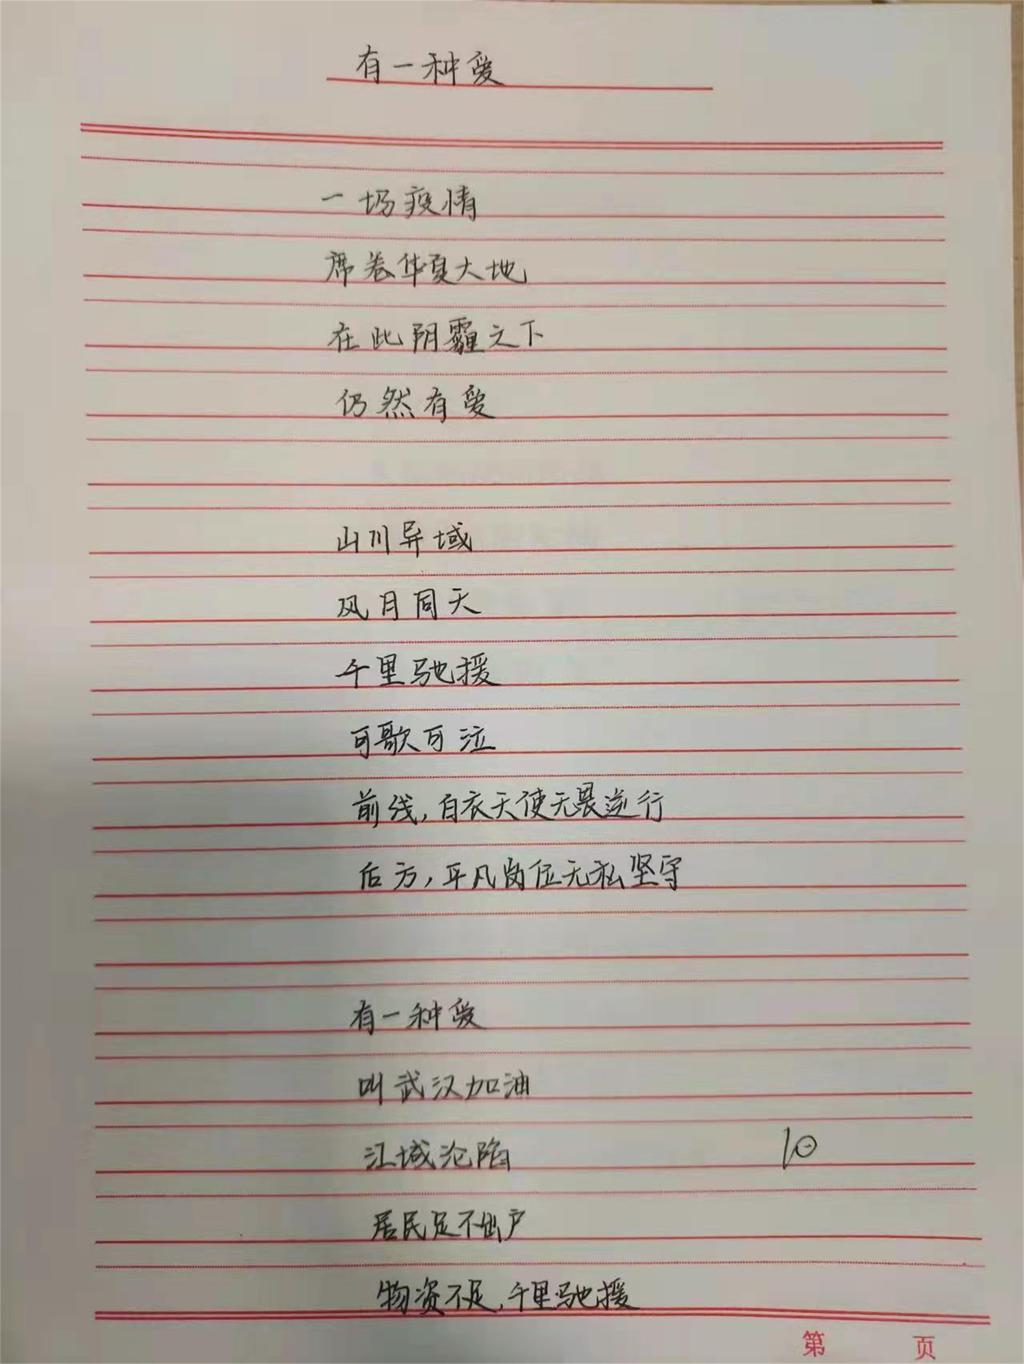 有一种爱
一场疫情
席卷华夏大地
在此阴霾之下
仍然有爱
山川异域
风月同天
千里驰援
可歌可泣
前线,白衣天使无畏逆行
后方,平凡岗位无私坚守
有一种爱
叫武汉加油
江城沦陷
10
居民足不出户
物资不足,千里驰援
第 页